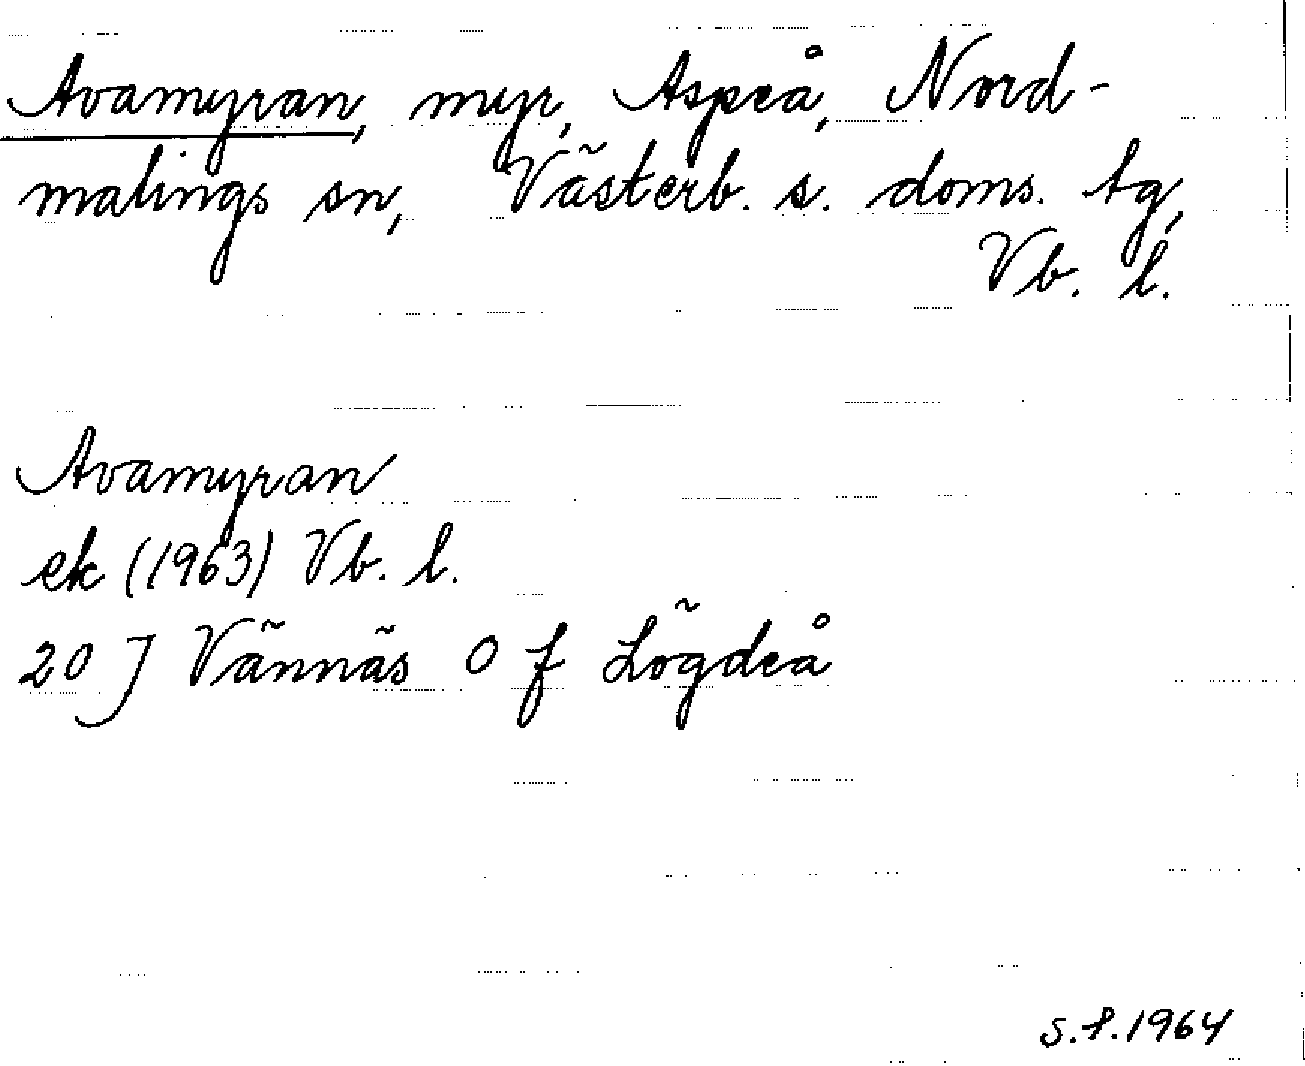 Avamyran, myr, Aspeå, Nord-
malings sn, Västerb. s. doms. tg,
Vb. l.
Avamyran
ek (1963) Vb. l.
20 J Vännäs O f Lögdeå
S.f.1964